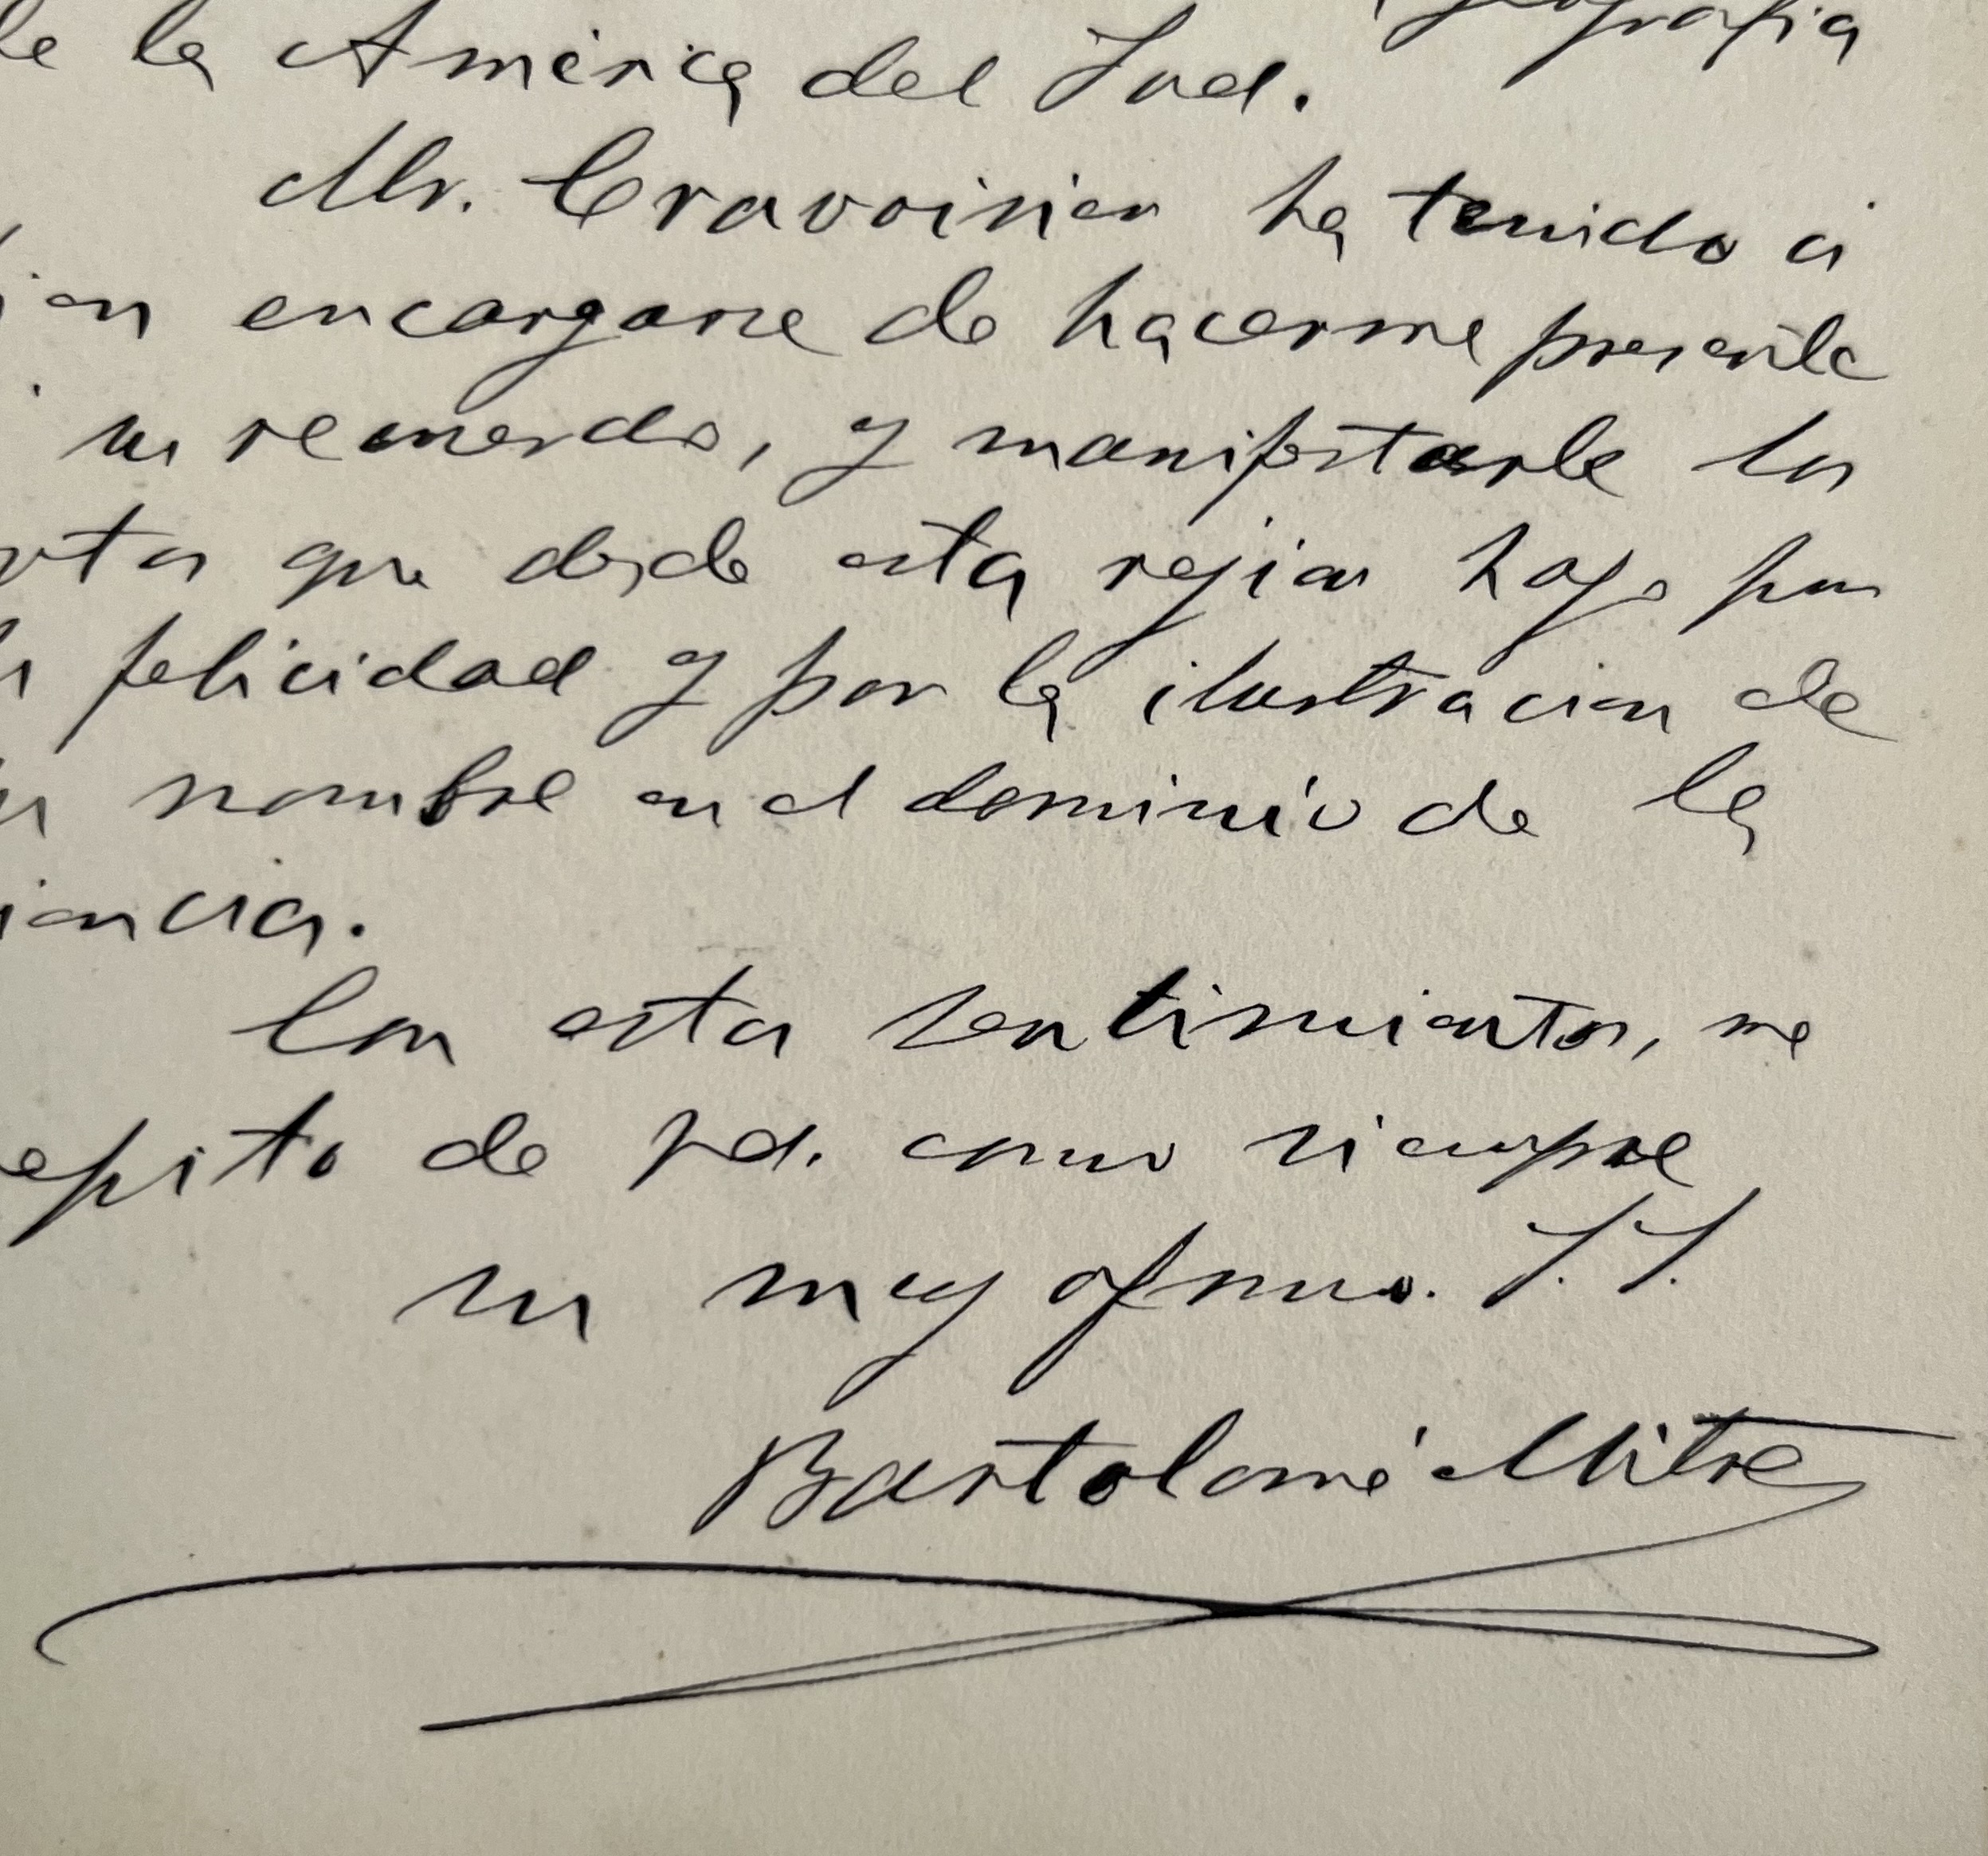 geografia
de la América del Sud.
Mr. Cravoisier ha tenido á
bien encargarse de hacerme presente
su recuerdo, y manifestarle los
votos que desde esta rejion hago por
su felicidad y por la ilustracion de
su nombre en el dominio de la
ciencia.
Con estos sentimientos, me
repito de Vd. como siempre
su muy afmo. S. S.
Bartolomé Mitre